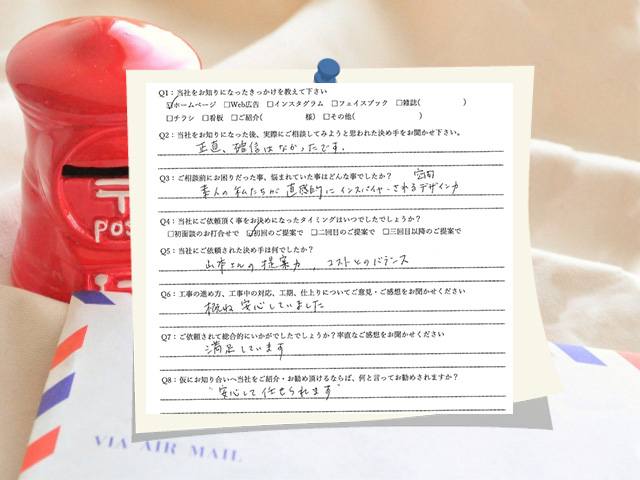 Q1：当社をお知りになったきっかけを教えて下さい
☑ホームページ □Web広告 □インスタグラム □フェイスブック □雑誌(　　　)
□チラシ □看板 □ご紹介(　　　様) □その他(　　　)
Q2：当社をお知りになった後、実際にご相談してみようと思われた決め手をお聞かせ下さい。
正直、確信はなかったです.
Q3：ご相談前にお困りだった事、悩まれていた事はどんな事でしたか？
空間
素人の私たちが直感的にインスパイヤーされるデザイン力
Q4：当社にご依頼頂く事をお決めになったタイミングはいつでしたでしょうか？
□初面談のお打合せで ☑初回のご提案で □二回目のご提案で □三回目以降のご提案で
Q5：当社にご依頼された決め手は何でしたか？
山本さんの提案力、コストとのバランス
Q6：工事の進め方、工事中の対応、工期、仕上りについてご意見・ご感想をお聞かせください
概ね安心していました
Q7：ご依頼されて総合的にいかがでしたでしょうか？率直なご感想をお聞かせください
満足しています
Q8：仮にお知り合いへ当社をご紹介・お勧め頂けるならば、何と言ってお勧めされますか？
"安心して任せられます"
POS
VIA AIR MAIL